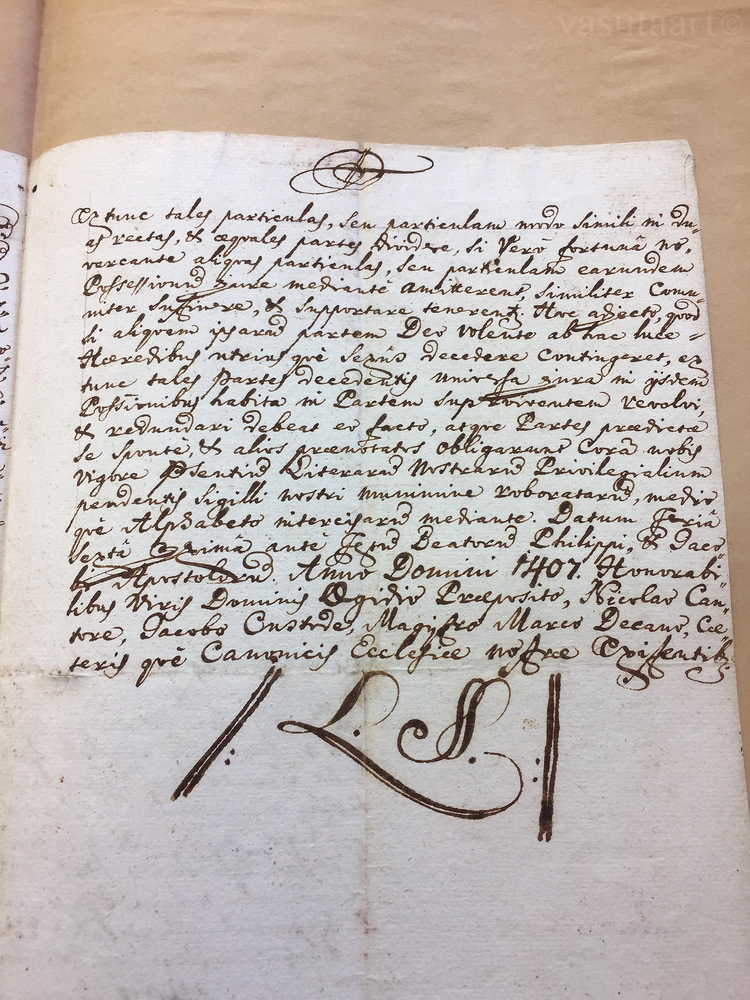 vasutaart©
Ex tunc tales particulas, seu particulam modo simili in du-
as rectas, & æquales partes dividere, si Verò fortunâ no-
vercante aliquas particulas, seu particulam earundem
Possessionũ Jure mediante amitterent, similiter Com̃u-
niter sufferre, & supportare tenerent. Hoc adjecto, quod
si aliquem ipsarũ partem Deo Volente ab hac luce =
Hæredibus utriusquè Sexûs decedere contingeret, ex
tunc tales Partes decedentis universa jura in ijsdem
Possessionibus habita in Partem supervivente͂m revolvi,
& redundari debeat eo facto, atque Partes prædictæ
se spontè, & alios prænotatos obligarunt Corã nobis
vigore Psentiũ Literarũ Nostrarũ Privilegialium
pendentis sigilli nostri munimine roboratarũ, medio
què Alphabeto intercisarũ mediante. Datum Feriâ
sextâ Proximâ antè Festũ Beatorũ Philippi, & Jaco-
bi Apostolorũ. Anno Domini 1407. Honorabi-
libus Viris Dominis Ægidio Præposito, Nicolao Can-
tore, Jacobo Custode, Magistro Marco Decano, Cæ-
teris què Canonicis Ecclesiæ nostræ Existentib9
/: L. S. :/